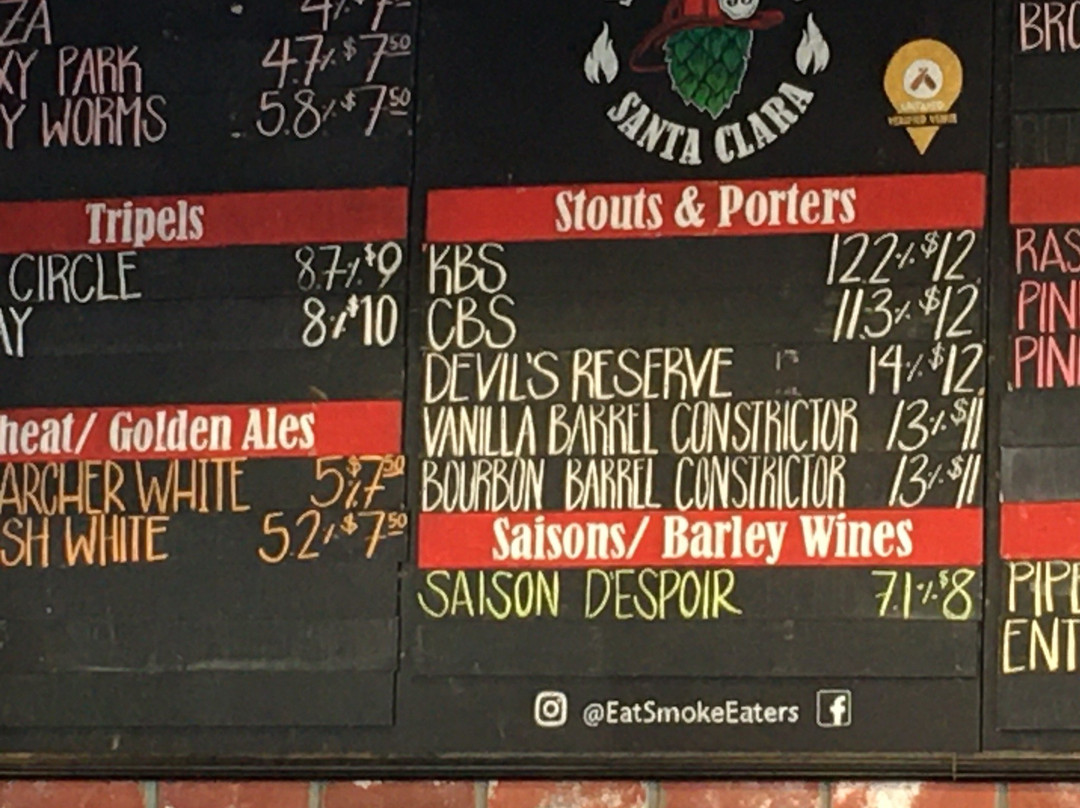 ZA 4% 7
XY PARK 4.7% $7.50
Y WORMS 5.8% $7.50
Tripels
CIRCLE 8.7% $9
AY 8% $10
heat/ Golden Ales
ARCHER WHITE 5% $7.50
SH WHITE 5.2% $7.50
SANTA CLARA
UNTAPPD
VERIFIED VENUE
Stouts & Porters
KBS 12.2% $12
CBS 11.3% $12
DEVIL'S RESERVE 14% $12
VANILLA BARREL CONSTRICTOR 13% $11
BOURBON BARREL CONSTRICTOR 13% $11
Saisons/ Barley Wines
SAISON D'ESPOIR 7.1% $8
@EatSmokeEaters
BRO
RAS
PIN
PIN
PIPE
ENT